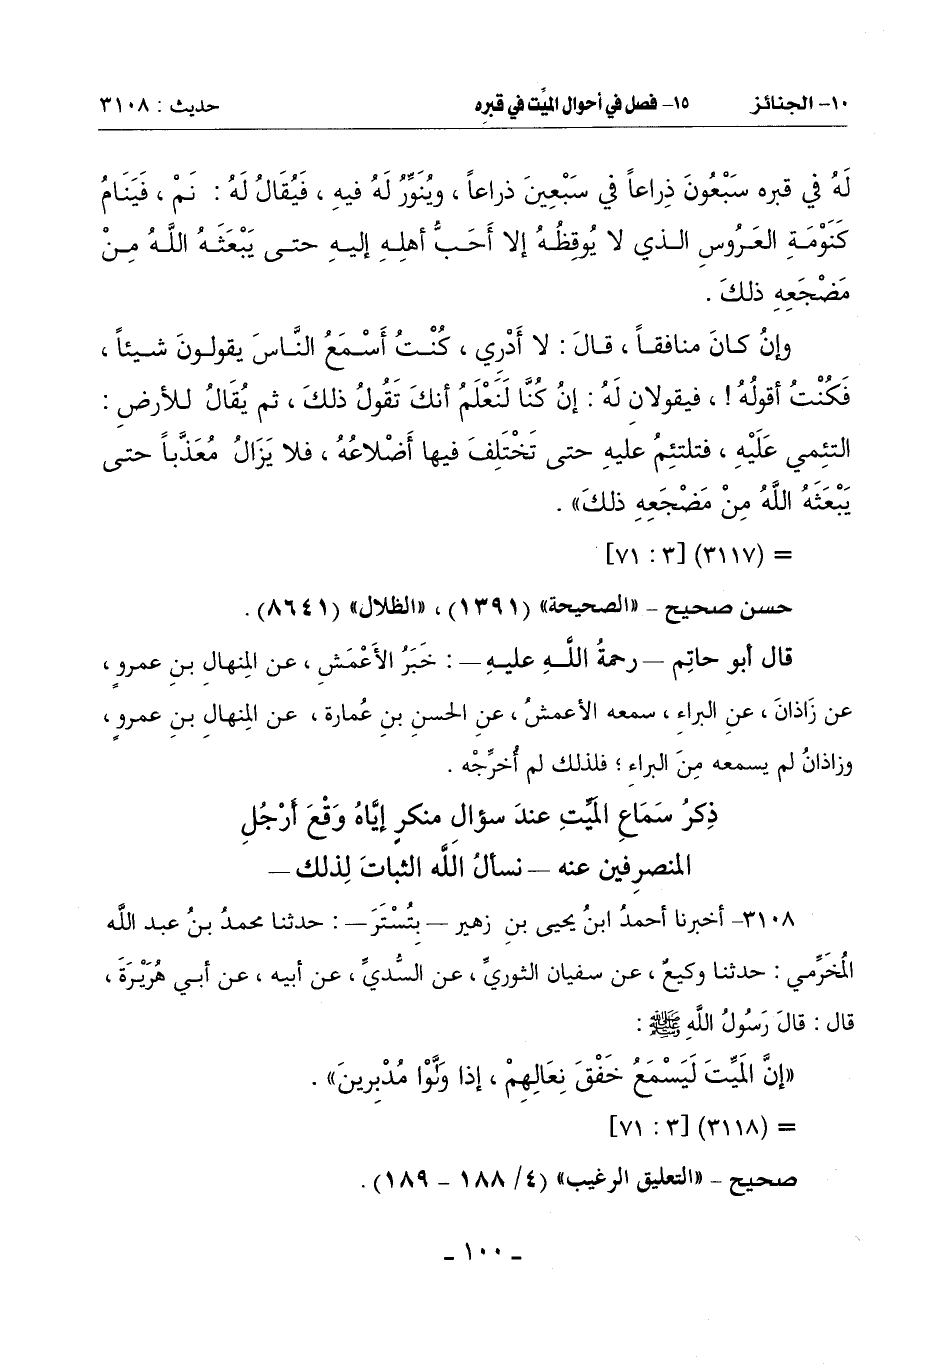 ١٠- الجنائز ١٥- فصل في أحوال الميِّت في قبره حديث : ٣١٠٨
لَهُ في قبره سَبْعُونَ ذِراعاً في سَبْعِينَ ذراعاً ، ويُنَوَّرُ لَهُ فيهِ ، فَيُقَالُ لَهُ : نَمْ ، فَيَنَامُ
كَنَوْمَةِ العَرُوسِ الذي لا يُوقِظُهُ إلا أَحَبُّ أهلِهِ إليهِ حتى يَبْعَثَهُ اللَّهُ مِنْ
مَضْجَعِهِ ذلكَ .
وإنْ كانَ منافقاً ، قالَ : لا أَدْرِي ، كُنْتُ أَسْمَعُ النَّاسَ يقولونَ شيئاً ،
فَكُنْتُ أقولُهُ ! ، فيقولانِ لَهُ : إنْ كُنَّا لَنَعْلَمُ أنكَ تَقُولُ ذلكَ ، ثم يُقَالُ للأرضِ :
التئِمي عَلَيْهِ ، فتلتئِمُ عليهِ حتى تَخْتَلِفَ فيها أَضْلاعُهُ ، فلا يَزَالُ مُعَذَّباً حتى
يَبْعَثَهُ اللَّهُ مِنْ مَضْجَعِهِ ذلكَ» .
= (٣١١٧) [٣ : ٧١]
حسن صحيح – «الصحيحة» (١٣٩١) ، «الظلال» (٨٦٤١) .
قال أبو حاتِم – رحمةُ اللَّهِ عليهِ – : خَبَرُ الأَعْمَشِ ، عن المِنهال بنِ عمروٍ ،
عن زَاذَانَ ، عنِ البراءِ ، سمعه الأعمشُ ، عنِ الحسنِ بنِ عُمارة ، عنِ المِنهالِ بنِ عمروٍ ،
وزاذانُ لم يسمعه مِنَ البراءِ ؛ فلذلك لم أُخرِّجْه .
ذِكرُ سَمَاعِ المَيِّتِ عندَ سؤالِ منكرٍ إيَّاهُ وَقْعَ أَرْجُلِ
المنصرِفين عنه – نسألُ اللَّه الثباتَ لِذلك –
٣١٠٨- أخبرنا أحمدُ ابنُ يحيى بنِ زهير – بِتُسْتَرَ – : حدثنا محمدُ بنُ عبد اللَّه
المُخَرِّمي : حدثنا وكيعٌ ، عن سفيان الثوريِّ ، عن السُّديِّ ، عن أبيه ، عن أبي هُرَيْرَةَ ،
قال : قالَ رَسُولُ اللَّهِ ﷺ :
«إنَّ المَيِّتَ لَيَسْمَعُ خَفْقَ نِعَالِهِمْ ، إذا وَلَّوْا مُدْبِرِينَ» .
= (٣١١٨) [٣ : ٧١]
صحيح – «التعليق الرغيب» (٤/ ١٨٨ – ١٨٩) .
- ١٠٠ -